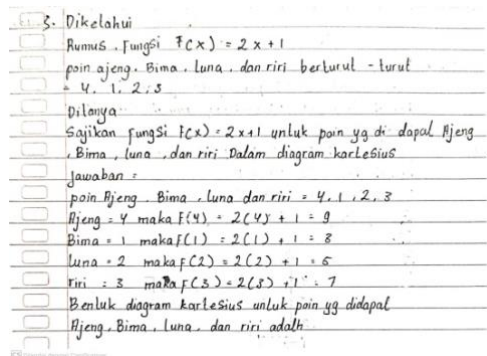 3. Diketahui
Rumus. Fungsi F(x) = 2x+1
poin ajeng. Bima, luna, dan riri berturut - turut
= 4, 1, 2, 3
Ditanya
Sajikan fungsi F(x) = 2x+1 untuk poin yg di dapat Ajeng
, Bima, luna, dan riri Dalam diagram kartesius
Jawaban =
poin Ajeng. Bima, luna dan riri = 4, 1, 2, 3
Ajeng = 4 maka F(4) = 2(4) + 1 = 9
Bima = 1 maka F(1) = 2(1) + 1 = 3
luna = 2 maka F(2) = 2(2) + 1 = 5
riri = 3 maka F(3) = 2(3) + 1 = 7
Bentuk diagram kartesius untuk poin yg didapat
Ajeng, Bima, luna, dan riri adalh